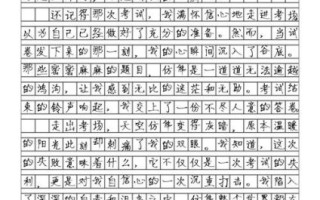 还记得那次考试，我满怀信心地走进考场
以为自己已经做好了充分的准备。然而，当试
卷发下来的那一刻，我的心瞬间沉入了谷底。
那些密密麻麻的题目，仿佛是一道道无法逾越
的鸿沟，让我感到无比的迷茫和无助。考试结
束的铃声响起，我交上了一份不尽人意的答卷
走出考场，天空仿佛变得灰暗，原本温暖
的阳光此刻却刺痛了我的双眼。我知道，这次
的失败意味着什么，它不仅仅是一次考试的失
利，更是对我自信心的一次沉重打击。我陷入
了深深的自责